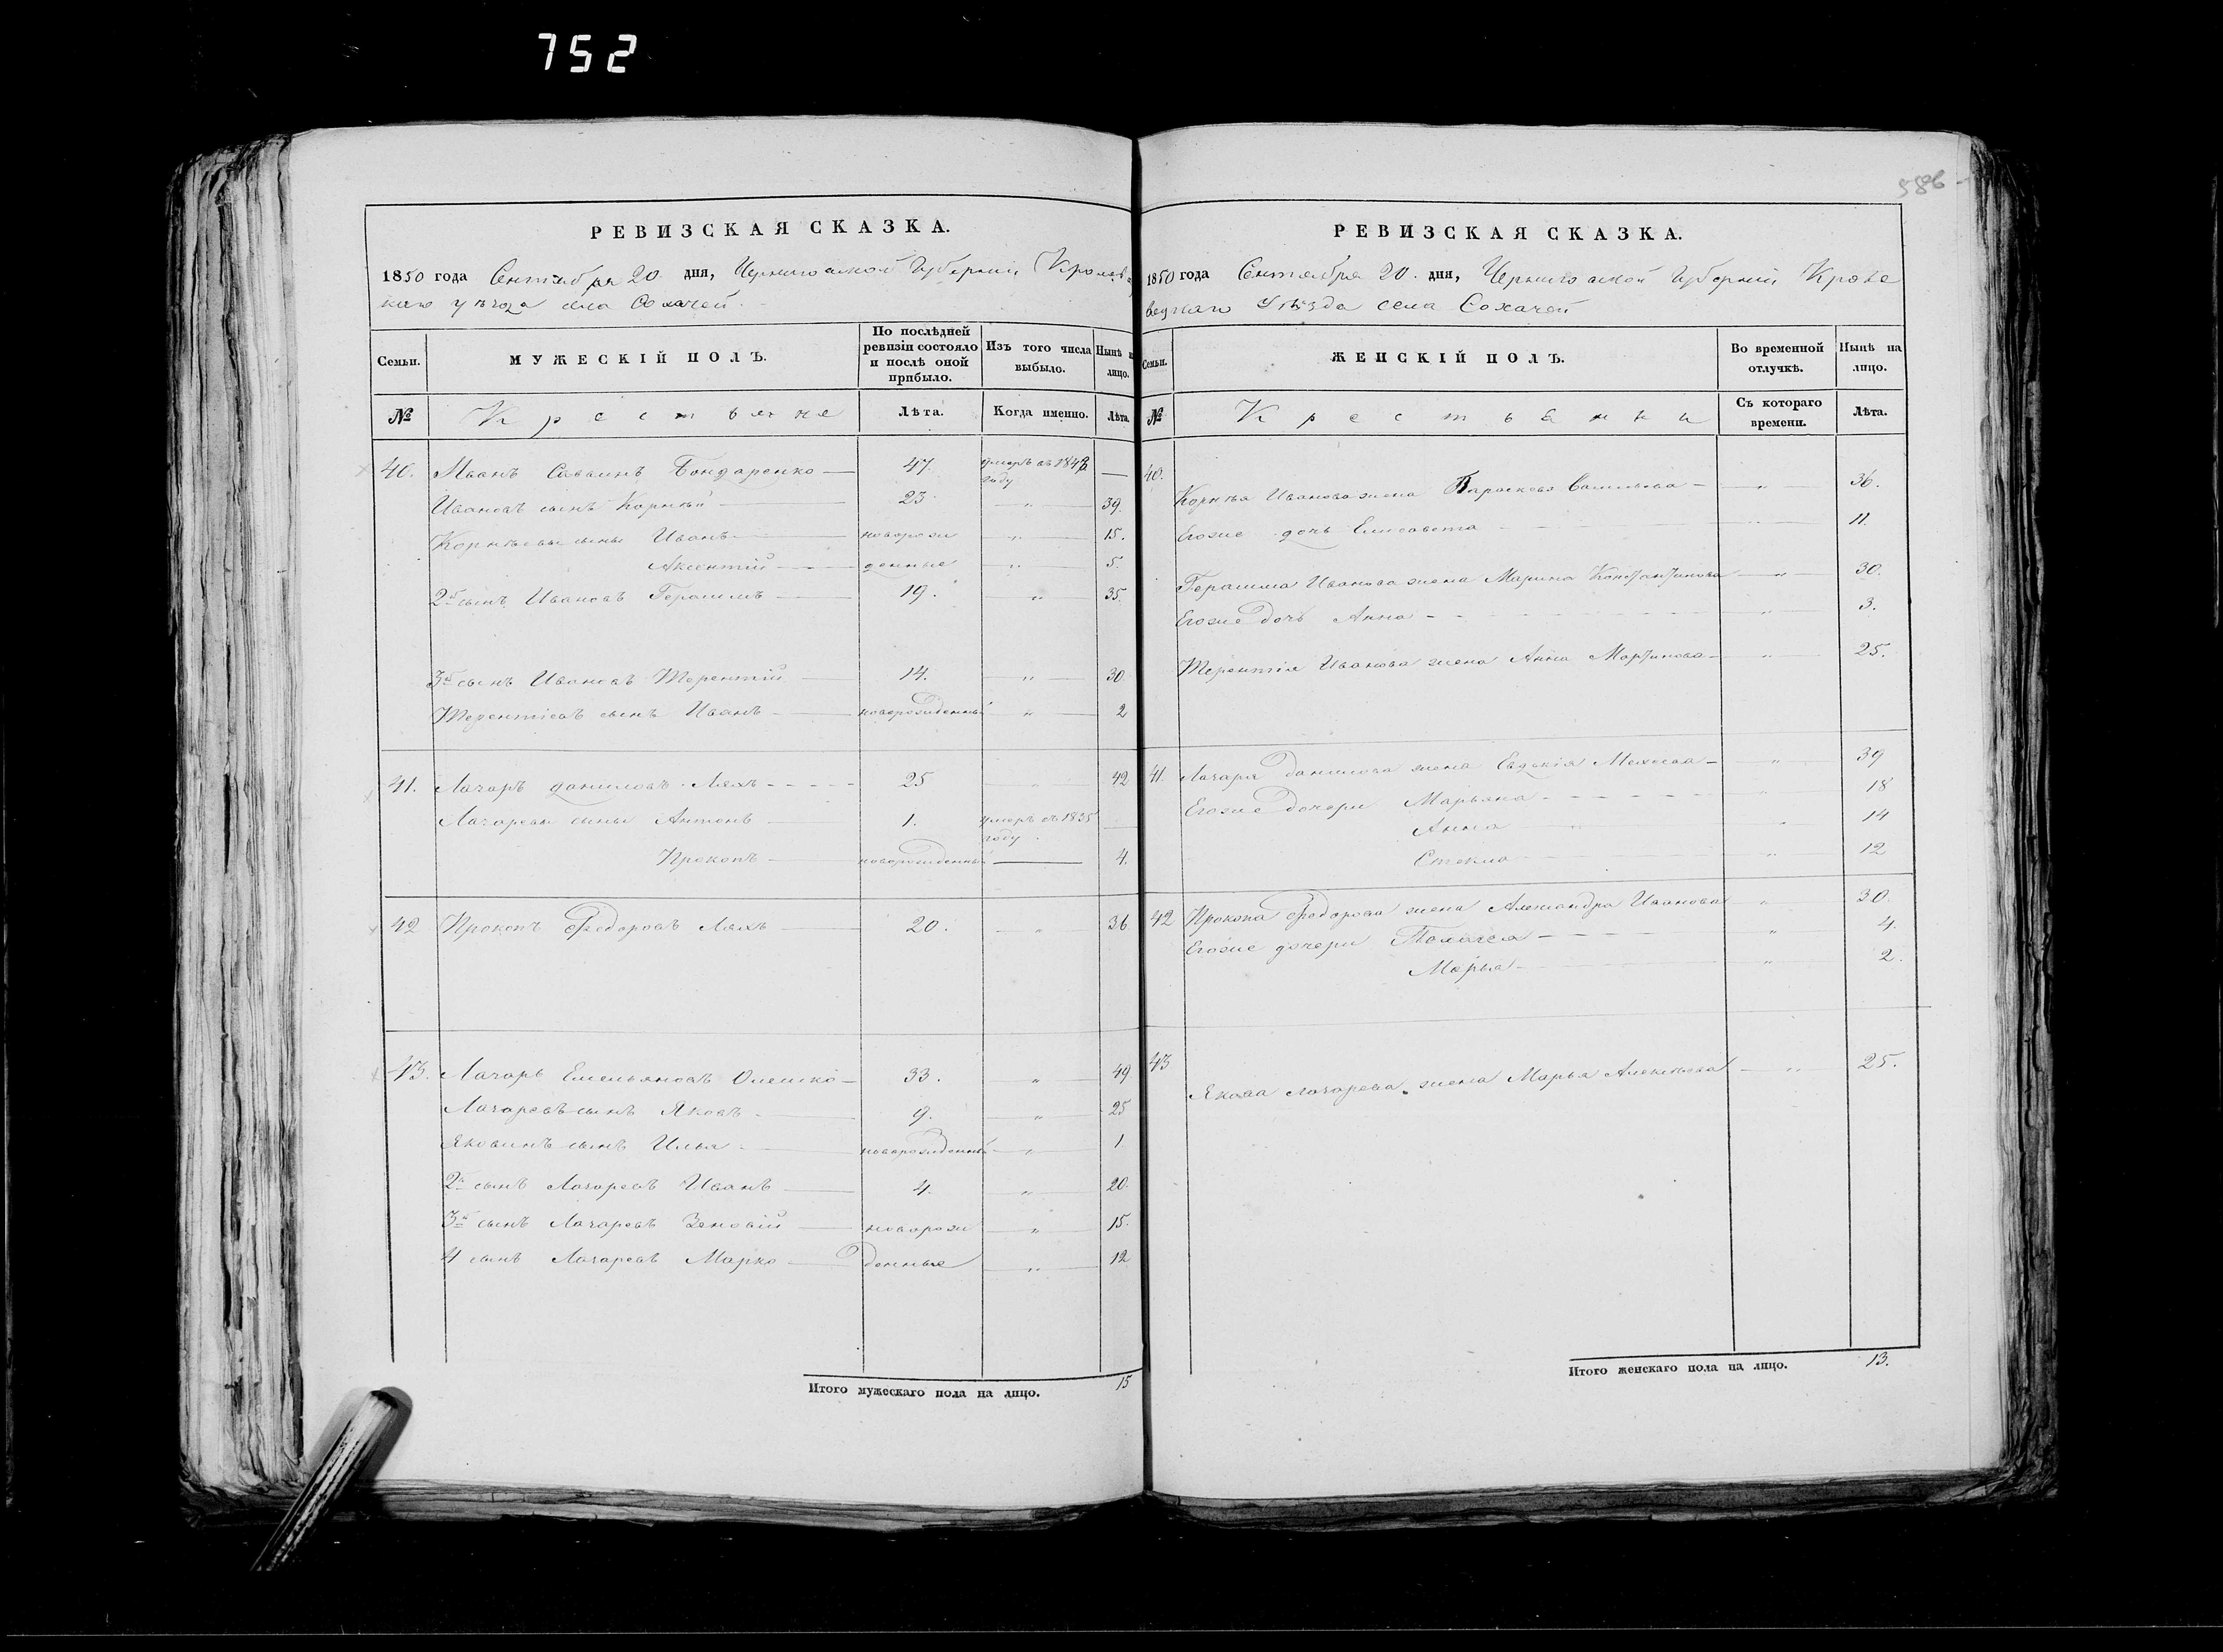 752
586
РЕВИЗСКАЯ СКАЗКА.
1850 года Сентября 20 дня, Черниговской Губернии Кролев
каго уѣзда села Сохачей
Семьи. МУЖЕСКІЙ ПОЛЪ. По послѣдней ревизіи состояло и послѣ оной прибыло. Изъ того числа выбыло. Нынѣ н лицо.
№ Крестьяне Лѣта. Когда именно. Лѣта.
40. Иванъ Саввинъ Бондаренко 47. умеръ въ году —
Ивановъ сынъ Корнѣй 23 " 39.
Корнѣевы сыны Иванъ новорож " 15.
Аксентій денные " 5.
2й сынъ Ивановъ Герасимъ 19. " 35.
3й сынъ Ивановъ Терентій 14. " 30
Терентіевъ сынъ Иванъ новорожденный " 2
41. Лазарь Даниловъ Ляхъ 25 " 42
Лазаревы сыны Антонъ 1. умеръ въ 1835 году —
Прокопъ новорожденный — 4.
42 Прокопъ Федоровъ Ляхъ 20. " 36
43. Лазарь Емельяновъ Олешко 33. " 49
Лазаревъ сынъ Яковъ 9. " 25
Яковинъ сынъ Илья новорожденный " 1
2й сынъ Лазаревъ Иванъ 4. " 20.
3й сынъ Лазаревъ Зеновій новорож " 15.
4 сынъ Лазаревъ Марко денные " 12
Итого мужескаго пола на лицо. 15
РЕВИЗСКАЯ СКАЗКА.
1850 года Сентября 20. дня, Черниговской Губерний Кроле
вецкаго Уѣзда села Сохачей
Семьи. ЖЕНСКІЙ ПОЛЪ. Во временной отлучкѣ. Нынѣ на лицо.
№ Крестьянки Съ котораго времени. Лѣта.
40. Корнѣя Иванова жена Параскева Васильева " 36.
Егоже дочь Елисавета " 11.
Герасима Иванова жена Марина Константинова " 30.
Егоже дочь Анна " 3.
Терентія Иванова жена Анна Мартинова " 25.
41. Лазаря Данилова жена Евдокія " 39
Егоже дочери Марьяна " 18
Анна " 14
Стекла " 12
42 Прокопа Федорова жена Александра Иванова " 30.
Егоже дочери Пелагея " 4.
Марья " 2.
43 Якова Лазарева жена Марья Алексѣева " 25.
Итого женскаго пола на лицо. 13.